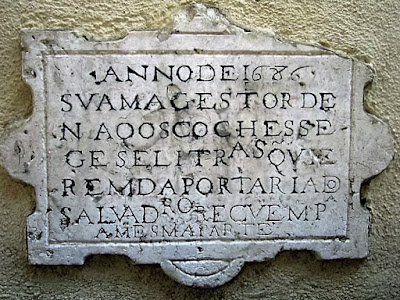 ·ANNO DE 1686·
SVA MAGESTOR DE
NA QOS COCHES SE
GES E LITRAS QVIE
REM DA PORTARIA DO
SALVADRO RECVEM PA
A MESMA PARTE